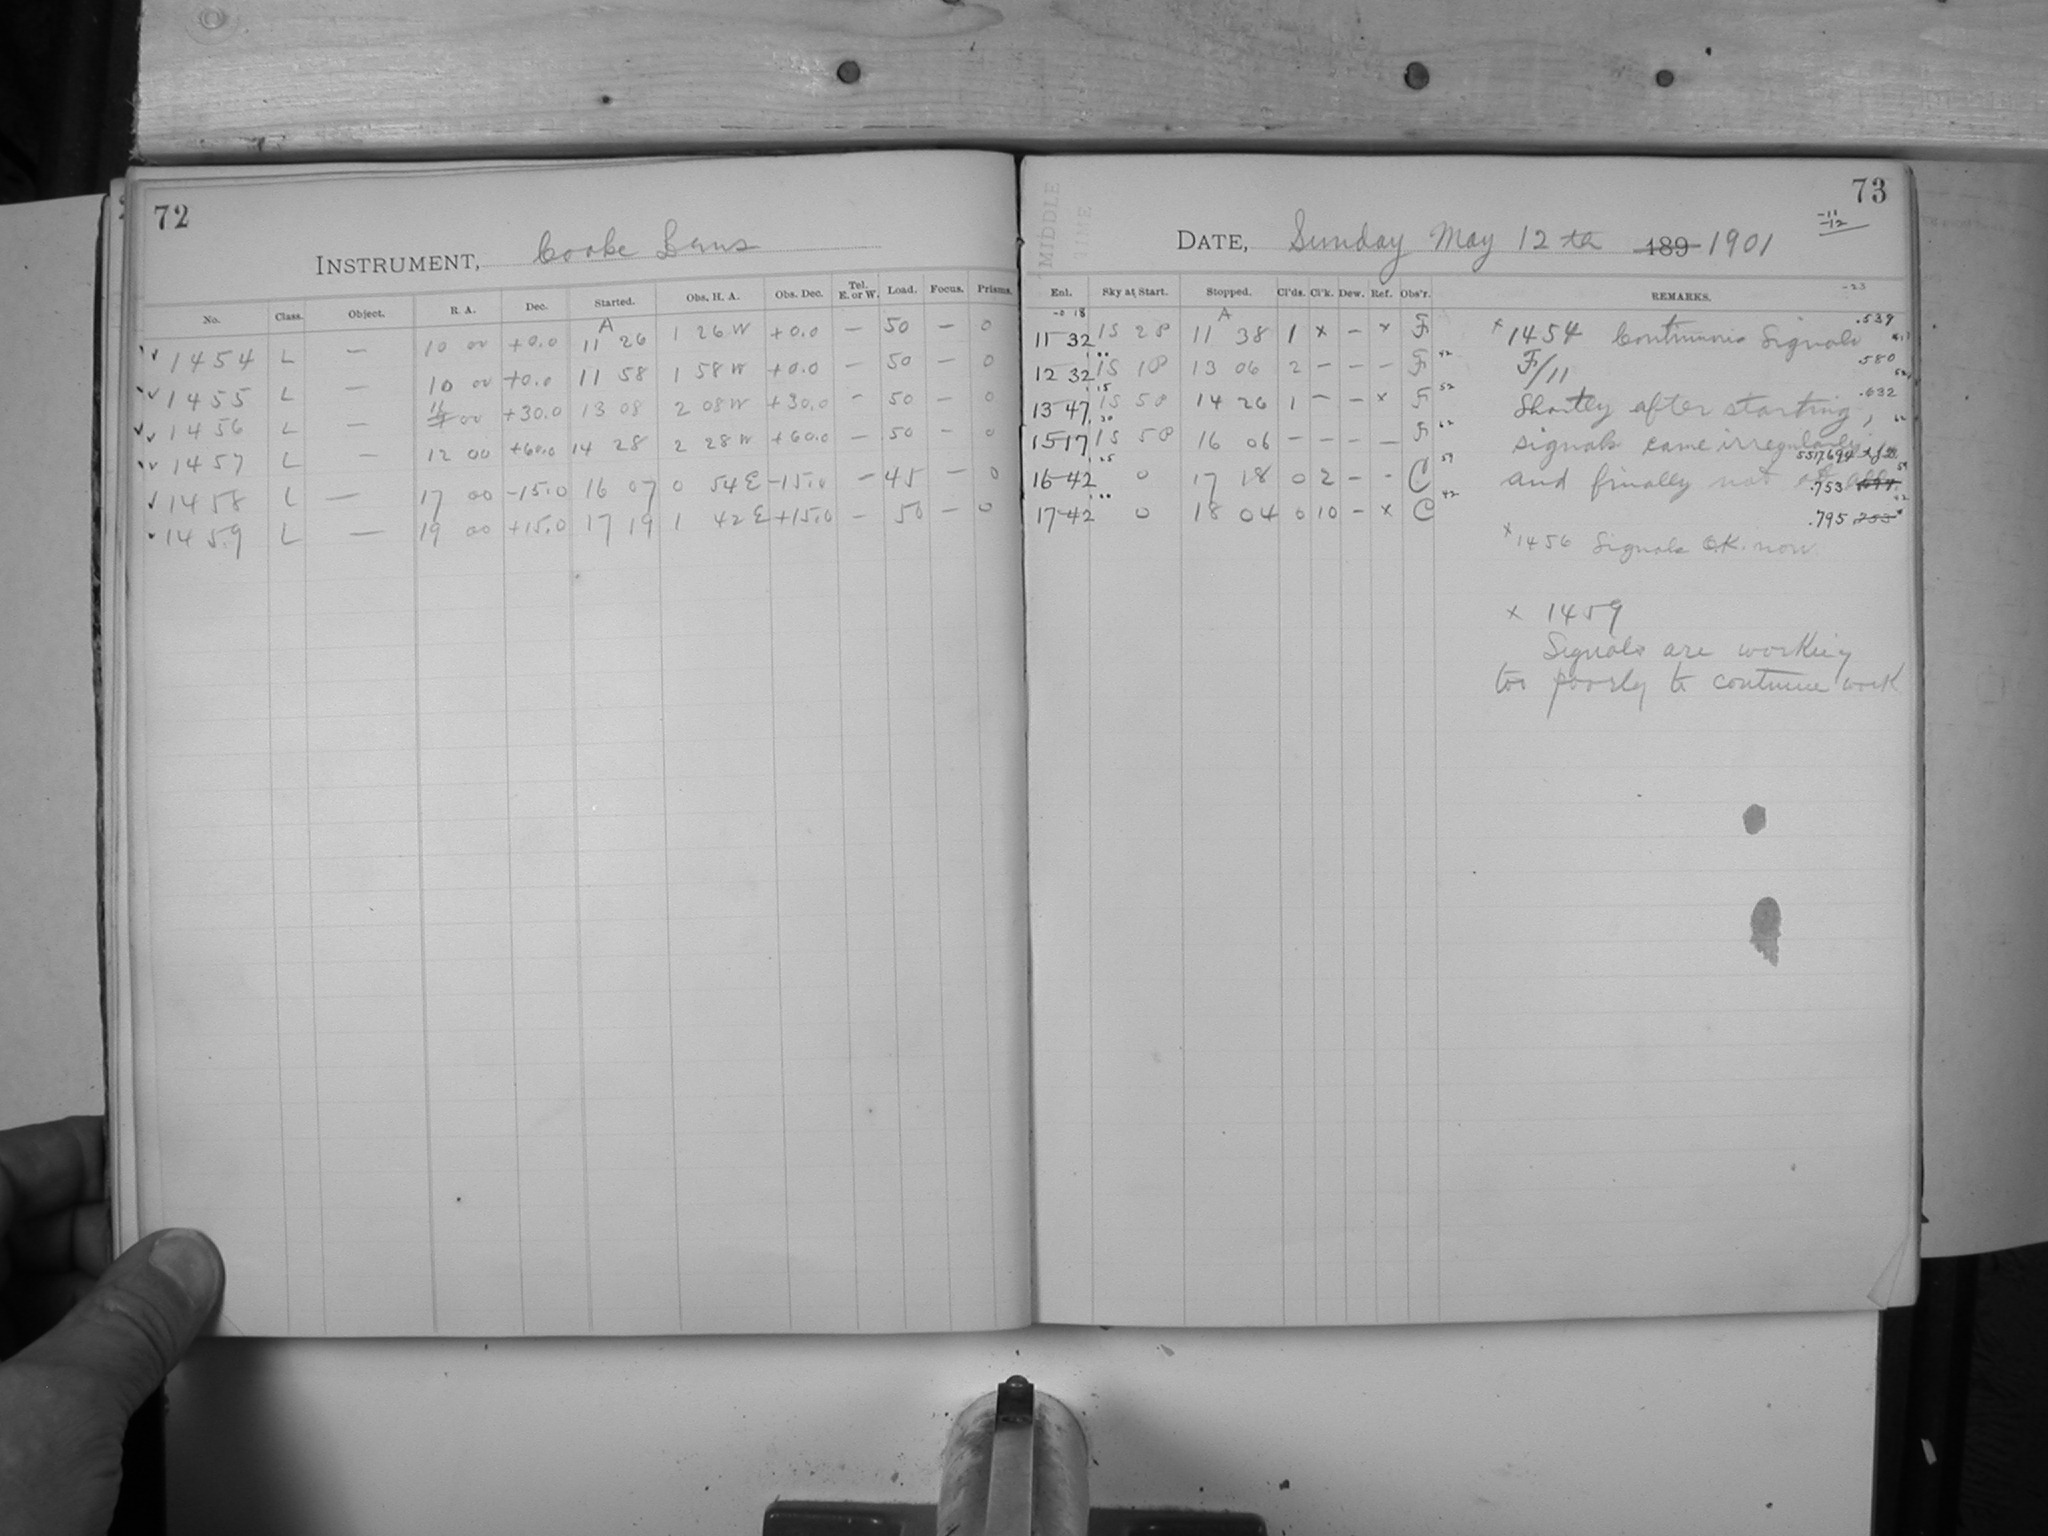 72
INSTRUMENT, Cooke Lens
No. Class. Object. R. A. Dec. Started. Obs. H. A. Obs. Dec. Tel. E. or W. Load. Focus. Prisms.
A
1454 L — 10 00 +0.0 11 26 1 26 W +0.0 — 50 — 0
1455 L — 10 00 +0.0 11 58 1 58 W +0.0 — 50 — 0
1456 L — 11 00 +30.0 13 08 2 08 W +30.0 — 50 — 0
1457 L — 12 00 +60.0 14 28 2 28 W +60.0 — 50 — 0
1458 L — 17 00 -15.0 16 07 0 54 E -15.0 — 45 — 0
1459 L — 19 00 +15.0 17 19 1 42 E +15.0 — 50 — 0
MIDDLE
TIME
73
-11
-12
DATE, Sunday May 12th 189 1901
-23
Enl. Sky at Start. Stopped. Cl'ds. Cl'k. Dew. Ref. Obs'r. REMARKS.
A
11 32 1S 2P 11 38 1 x — x F
12 32 1S 1P 13 06 2 — — — F 42
13 47 1S 5P 14 26 1 — — x F 52
15 17 1S 5P 16 06 — — — — F 62
16 42 0 17 18 0 2 — - C 59
17 42 0 18 04 0 10 — x C 42
x 1454 Continuous Signals .539
F/11 .580
Shortly after starting, .632
signals came irregularly
and finally not at all. .753
.795
x 1456 Signals O.K. now
x 1459
Signals are working
too poorly to continue work